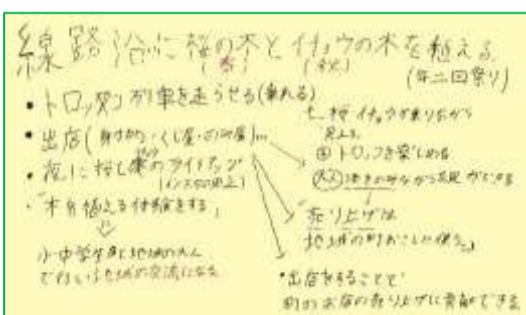 線路沿に桜の木とイチョウの木を植える
(春)
(秋)
(年二回祭り)
・トロッコ列車を走らせる(乗れる)
・出店(射的・くじ屋・
・夜に桜
ライトアップ
・「木を植える体験をする」
小中学生
地域の交流になる
桜 イチョウが乗りながら
見える
トロッコを楽しめる
大人
ながら花見ができる
「売り上げは
地域の町おこしに使う。」
・出店をすることで
町のお店の売り上げに貢献できる